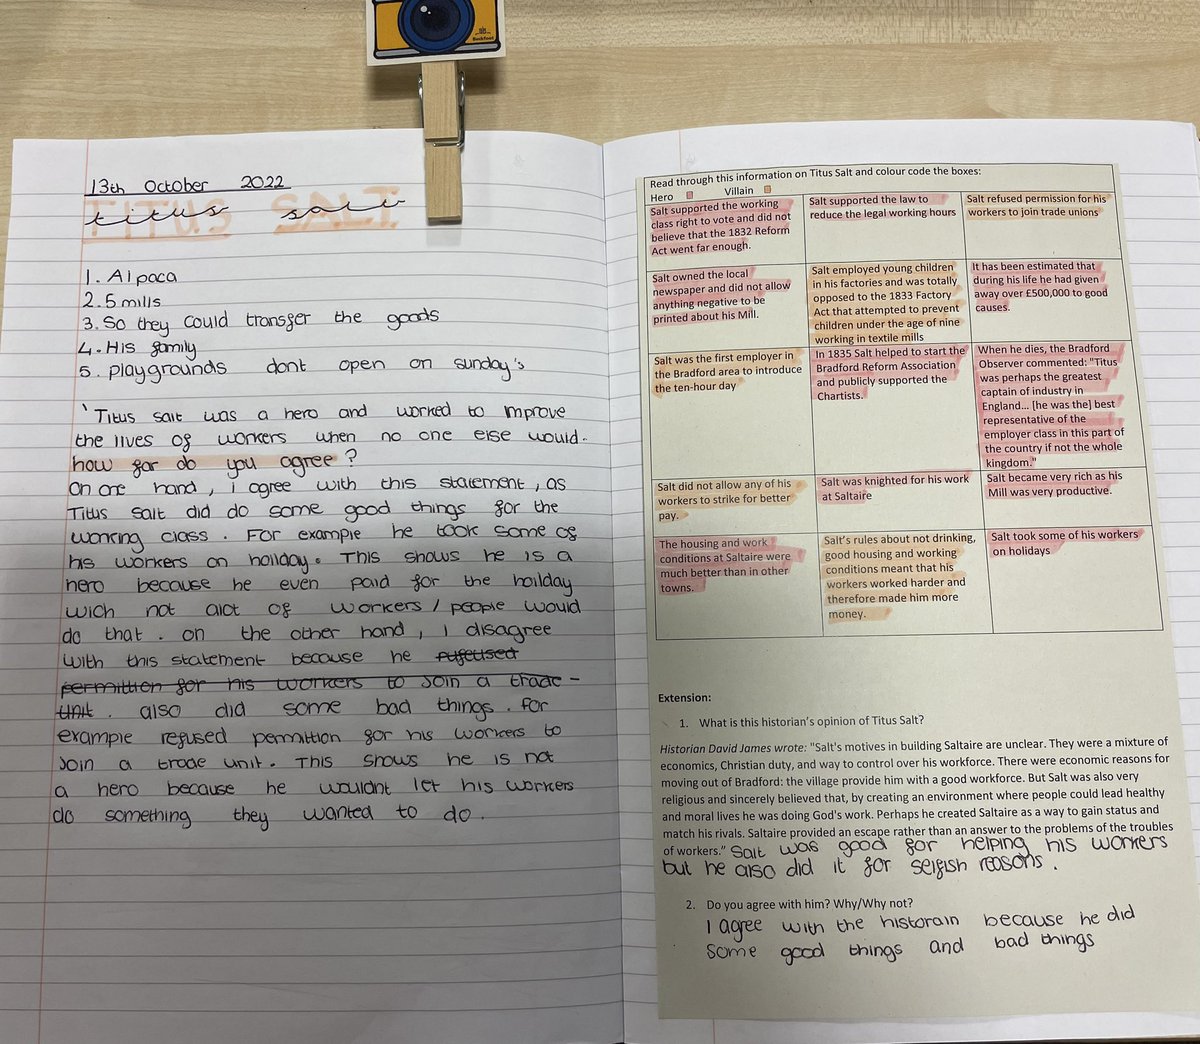 13th October 2022
TITUS SALT
titus salt
1. Alpaca
2. 5 mills
3. So they could transfer the goods
4. His family
5. playgrounds dont open on sunday's
'Titus salt was a hero and worked to improve
the lives of workers when no one else would.
how far do you agree?
On one hand, i agree with this statement, as
Titus salt did do some good things for the
working class. For example he took some of
his workers on hoilday. This shows he is a
hero because he even paid for the hoilday
wich not alot of workers/people would
do that. on the other hand, i disagree
with this statement because he rufeused
permittion for his workers to Join a trade-
unit. also did some bad things. for
example refused permittion for his workers to
Join a trade unit. This shows he is not
a hero because he wouldnt let his workers
do something they wanted to do.
Read through this information on Titus Salt and colour code the boxes:
Hero Villain
Salt supported the working
class right to vote and did not
believe that the 1832 Reform
Act went far enough.
Salt supported the law to
reduce the legal working hours
Salt refused permission for his
workers to join trade unions
Salt owned the local
newspaper and did not allow
anything negative to be
printed about his Mill.
Salt employed young children
in his factories and was totally
opposed to the 1833 Factory
Act that attempted to prevent
children under the age of nine
working in textile mills
It has been estimated that
during his life he had given
away over £500,000 to good
causes.
Salt was the first employer in
the Bradford area to introduce
the ten-hour day
In 1835 Salt helped to start the
Bradford Reform Association
and publicly supported the
Chartists.
When he dies, the Bradford
Observer commented: "Titus
was perhaps the greatest
captain of industry in
England... [he was the] best
representative of the
employer class in this part of
the country if not the whole
kingdom."
Salt did not allow any of his
workers to strike for better
pay.
Salt was knighted for his work
at Saltaire
Salt became very rich as his
Mill was very productive.
The housing and work
conditions at Saltaire were
much better than in other
towns.
Salt's rules about not drinking,
good housing and working
conditions meant that his
workers worked harder and
therefore made him more
money.
Salt took some of his workers
on holidays
Extension:
1. What is this historian's opinion of Titus Salt?
Historian David James wrote: "Salt's motives in building Saltaire are unclear. They were a mixture of
economics, Christian duty, and way to control over his workforce. There were economic reasons for
moving out of Bradford: the village provide him with a good workforce. But Salt was also very
religious and sincerely believed that, by creating an environment where people could lead healthy
and moral lives he was doing God's work. Perhaps he created Saltaire as a way to gain status and
match his rivals. Saltaire provided an escape rather than an answer to the problems of the troubles
of workers." Salt was good for helping his workers
but he also did it for selfish reasons.
2. Do you agree with him? Why/Why not?
I agree with the historain because he did
some good things and bad things